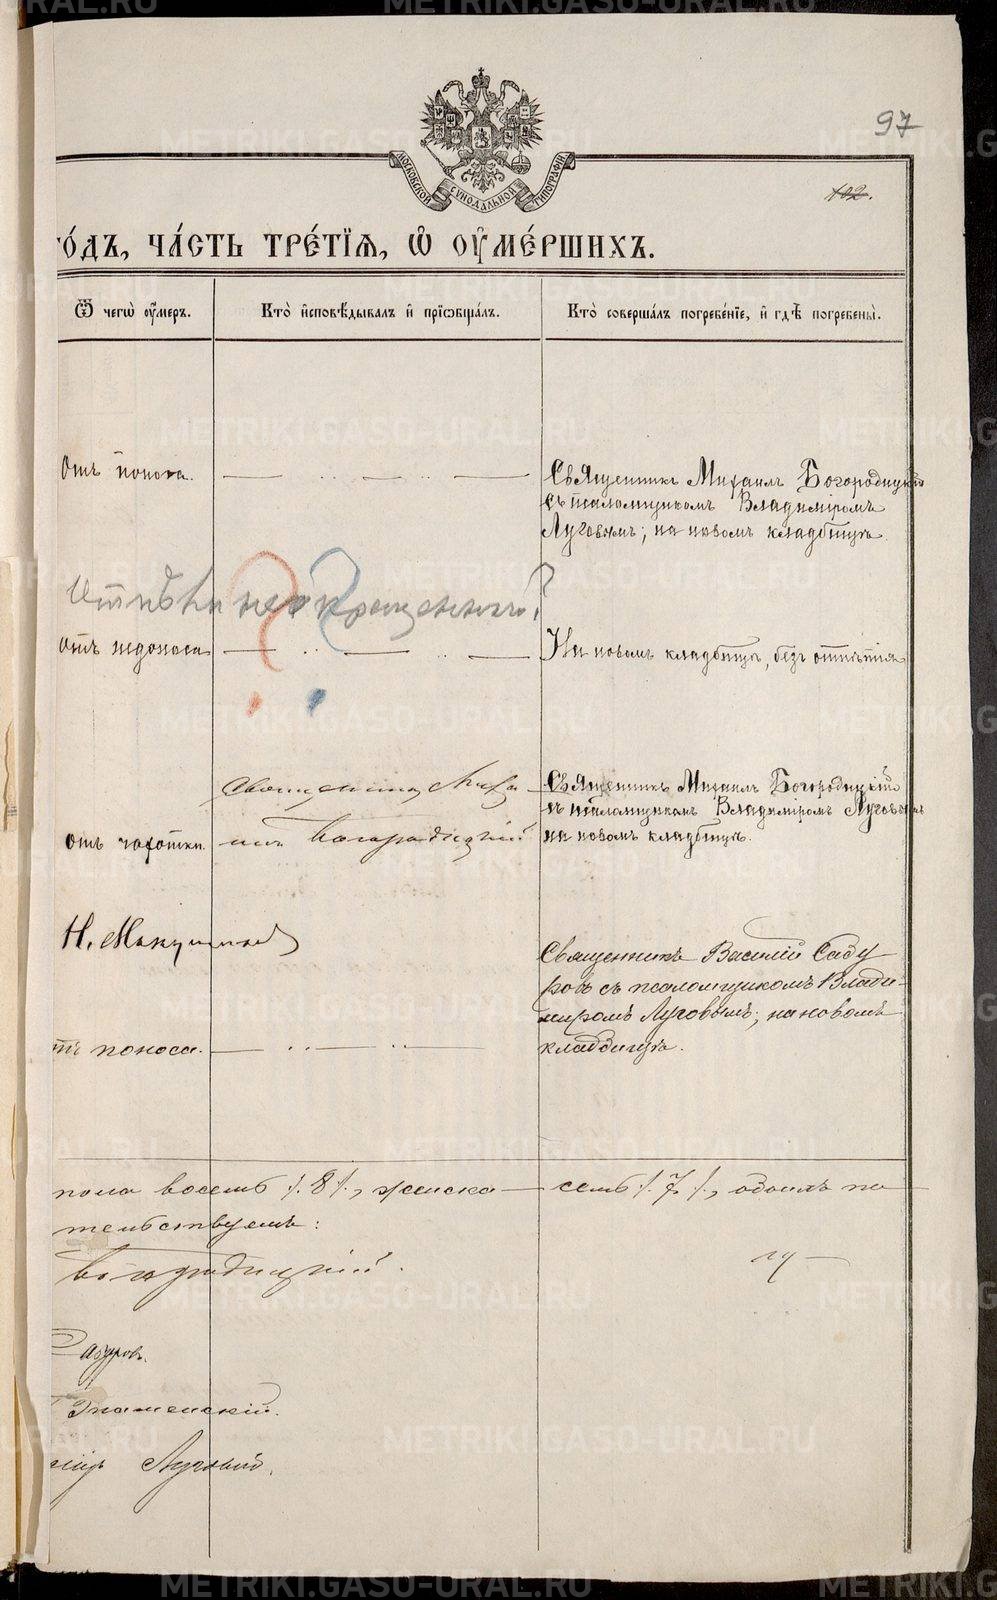 97
102.
МОСКОВСКОЙ СѴНОДАЛЬНОЙ ТИПОГРАФІИ
го́дъ, ча́сть тре́тїѧ, ѡ҆ ᲂу҆ме́ршихъ.
Ѿ чегѡ̀ ᲂу҆́меръ.
Кто̀ и҆сповѣ́дывалъ и҆ прїѡбща́лъ.
Кто̀ соверша́лъ погребе́нїе, и҆ гдѣ̀ погребены̀.
Отъ поноса.
Священникъ Михаилъ Богородицкій
съ псаломщикомъ Владиміромъ
Луговымъ; на новомъ кладбищѣ.
Отъ недоноса
На новомъ кладбищѣ, безъ отпѣтія
Священникъ Миха
илъ Богородицкій
Отъ чахотки.
Священникъ Михаилъ Богородицкій
съ псаломщикомъ Владиміромъ Луговымъ
на новомъ кладбищѣ.
Священникъ Василій Сабу
ровъ съ псаломщикомъ Влади-
міромъ Луговымъ; на новомъ
кладбищѣ.
тъ поноса.
пола восемь /.8/., женска
семь /.7/., обоихъ по
тельствуемъ:
Богородицкій.
Сабуровъ.
Знаменскій.
Луговый.
METRIKI.GASO-URAL.RU